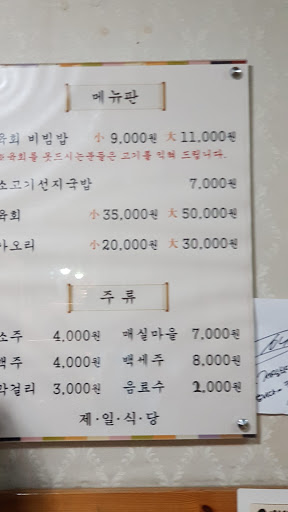 메뉴판
육회 비빔밥 小 9,000원 大 11,000원
육회를 못드시는분들은 고기를 익혀 드립니다.
소고기선지국밥 7,000원
육회 小 35,000원 大 50,000원
가오리 小 20,000원 大 30,000원
주 류
소주 4,000원 매실마을 7,000원
맥주 4,000원 백세주 8,000원
막걸리 3,000원 음료수 2,000원
제·일·식·당